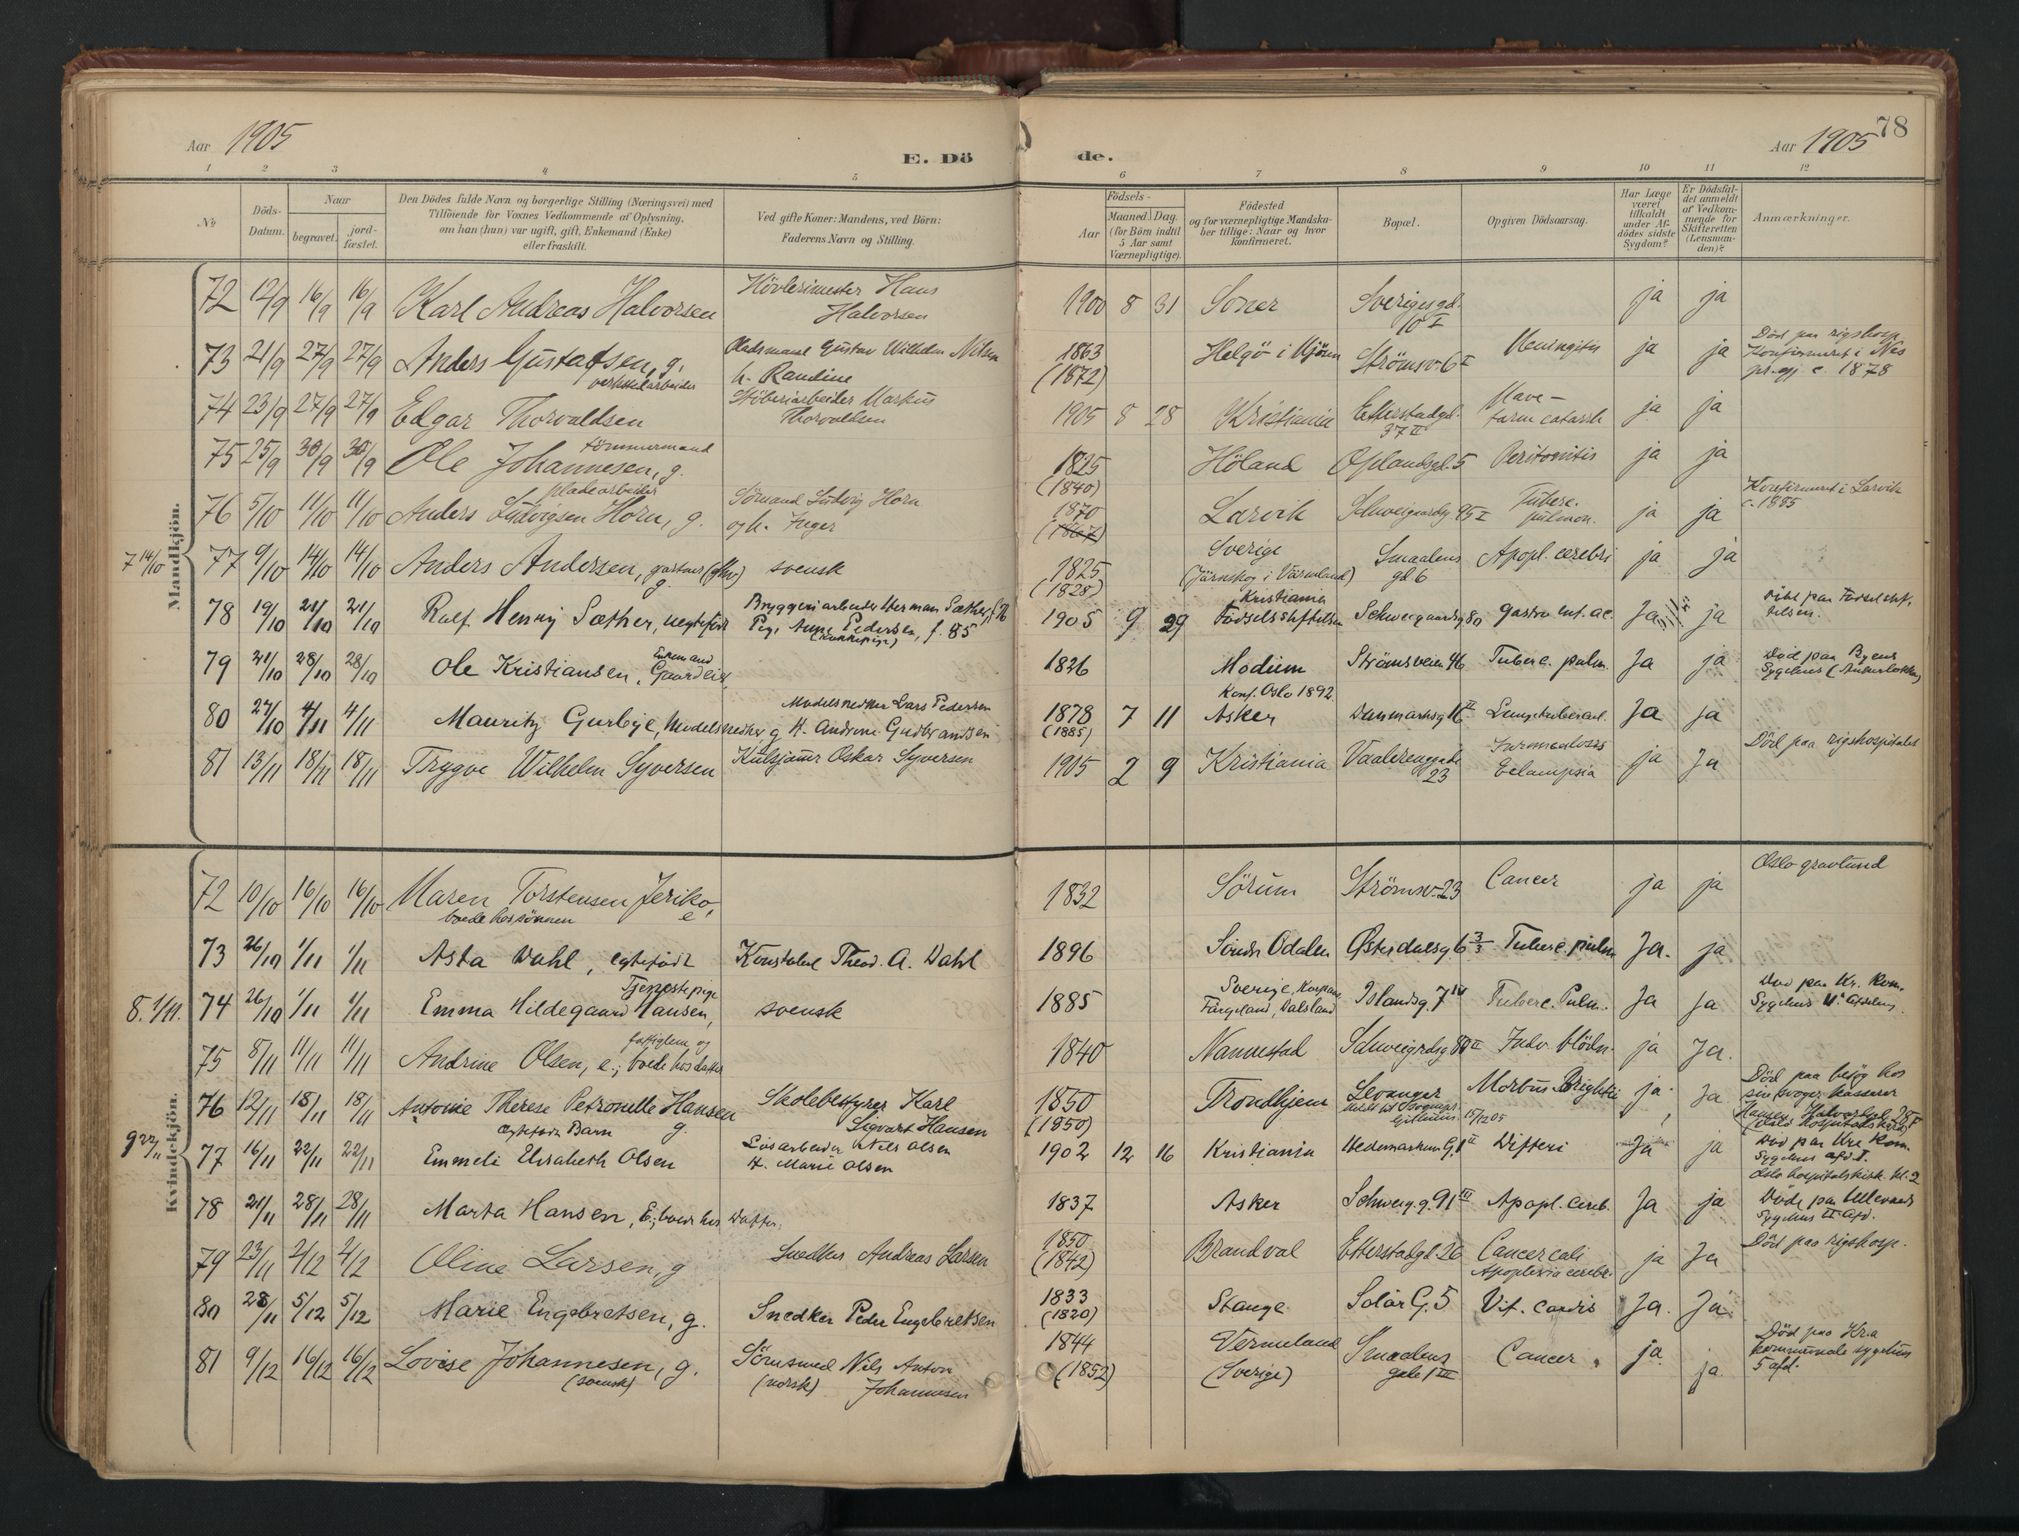 Aar 1905
E. Dö de.
Aar 1905
78
1 2 3 4 5 6 7 8 9 10 11 12
No
Döds-Datum.
Naar
begravet.
jord-fæstet.
Den Dödes fulde Navn og borgerlige Stilling (Næringsvei) med
Tilföiende for Voxnes Vedkommende af Oplysning,
om han (hun) var ugift, gift, Enkemand (Enke)
eller fraskilt.
Ved gifte Koner: Mandens, ved Börn:
Faderens Navn og Stilling.
Födsels-
Aar
Maaned. Dag.
(for Börn indtil
5 Aar samt
Værnepligtige).
Födested
og for værnepligtige Mandska-
ber tillige: Naar og hvor
konfirmeret.
Bopæl.
Opgiven Dödsaarsag.
Har Læge
været
tilkaldt
under Af-
dödes sidste
Sygdom?
Er Dödsfal-
det anmeldt
af Vedkom-
mende for
Skifteretten
(Lensman-
den)?
Anmærkninger.
Mandkjön.
7 14/10
72 12/9 16/9 16/9 Karl Andreas Halvorsen Hövlerimester Hans Halvorsen 1900 8 31 Soner Sverigesgd. 10 I ja ja
73 21/9 27/9 27/9 Anders Gustafsen, g. Pladsmand Gustav Wilhelm Nilsen h. Randine 1863 (1872) Helgö i Mjösen Strömsv. 6 II Meningitis ja ja Död paa rigshosp. Konfirmeret i Nes pr.gj. c. 1878
74 23/9 27/9 27/9 Edgar Thorvaldsen Støberiarbeider Markus Thorvaldsen 1905 8 28 Kristiania Etterstadgd. 37 II Mave-tarm catarrh ja ja
75 25/9 30/9 30/9 Ole Johannesen, g. tömmermand 1825 (1840) Höland Oplandsgd. 5 Peritonitis ja ja
76 5/10 11/10 11/10 Anders Ludvigsen Horn, g. pladearbeider Sömand Ludvig Horn og h. Inger 1870 (1867) Larvik Schweigaardsg 95 I Tuberc. pulmon. ja ja Konfirmeret i Larvik c. 1885
77 9/10 14/10 14/10 Anders Andersen, g. svensk 1825 (1828) Sverige (Järnskog i Värmland) Smaalens gd 6 Apopl. cerebri ja ja
78 19/10 21/10 21/10 Ralf Henry Sæther, uegtefødt Bryggeriarbeider Herman Sæther, f. 76 Pige Anne Pedersen, f. 85 1905 9 29 Kristiania Fødselsstiftelsen Schweigaardsg 80 Gastro ent. ac. Ja ja Död paa Fødselsstiftelsen.
79 21/10 28/10 28/10 Ole Kristiansen, Enkemand Gaardeier, 1826 Modum Strömsveien 46 Tuberc. pulm. Ja ja Död paa Byens Sygehus
80 27/10 4/11 4/11 Mauritz Gurbye, Modelsnedker, g Modelsnedker Lars Pedersen H. Andrine Gudbrandsen 1878 (1885) 7 11 Konf. Oslo 1892 Asker Danmarksg 16 II Lungetubercul. Ja ja
81 13/11 18/11 18/11 Trygve Wilhelm Syversen Kulsjauer Oskar Syversen 1905 2 9 Kristiania Vaalerenggd. 23 Eclampsia ja Ja Död paa rigshospitalet
Kvindekjön.
8. 1/11.
9 22/11
72 10/10 16/10 16/10 Maren Torstensen Jeriko, e boede hos sønnen 1832 Sörum Strömsv. 23 Cancer ja ja Oslo gravlund
73 26/10 1/11 1/11 Asta Dahl, egtefødt Konstabel Theod. A. Dahl 1896 Søndr Odalen Østerdalsg. 6 3/3 Tuberc. pulm Ja. ja
74 26/10 1/11 1/11 Emma Hildegaard Hansen, Tjenestepige svensk 1885 Sverige, Färgeland, Dalsland Islandsg. 7 IV Tuberc. Pulm. Ja Ja Død paa Kr. Kom. Sygehus
75 8/11 11/11 11/11 Andrine Olsen, e.; fattiglem og boede hos datter 1840 Nannestad Schweigrdsg 80 II Indv. blödn. ja Ja.
76 12/11 18/11 18/11 Antonie Therese Petronelle Hansen g. Skolebestyrer Karl Sigvart Hansen 1850 (1850) Trondhjem Levanger Morbus Brightii 15/12 05 ja Ja Död paa besøg hos sin svoger kasserer Hansen
77 16/11 22/11 22/11 Emmeli Elisabeth Olsen egtefødt Barn Løsarbeider Nils Olsen H. Marie Olsen 1902 12 16 Kristiania Hedemarkens G. 1 II Difteri Ja ja Død paa Kra Kom. Sygehus afd. I.
78 21/11 28/11 28/11 Marta Hansen, E; boede hos Datter. 1837 Asker Schweig. g. 91 III Apopl. cereb. Ja ja Døde paa Ullevaal Sygehus II afd.
79 23/11 2/12 2/12 Oline Larsen, g Snedker Andreas Larsen 1850 (1842) Brandval Etterstadgd 26 Cancer coli Apoplexia cerebri ja Ja Död paa rigshosp.
80 28/11 5/12 5/12 Marie Engebretsen, g. Snedker Peder Engebretsen 1833 (1820) Stange Solør G. 5 Vit. Cordis Ja. Ja
81 9/12 16/12 16/12 Lovise Johannesen, g. (svensk) Sömsmed Nils Anton Johannesen (norsk) 1844 (1852) Vermeland (Sverige) Smaalens gade 1 III Cancer ja ja Död paa Kr.a kommunale sygehus 5 afd.